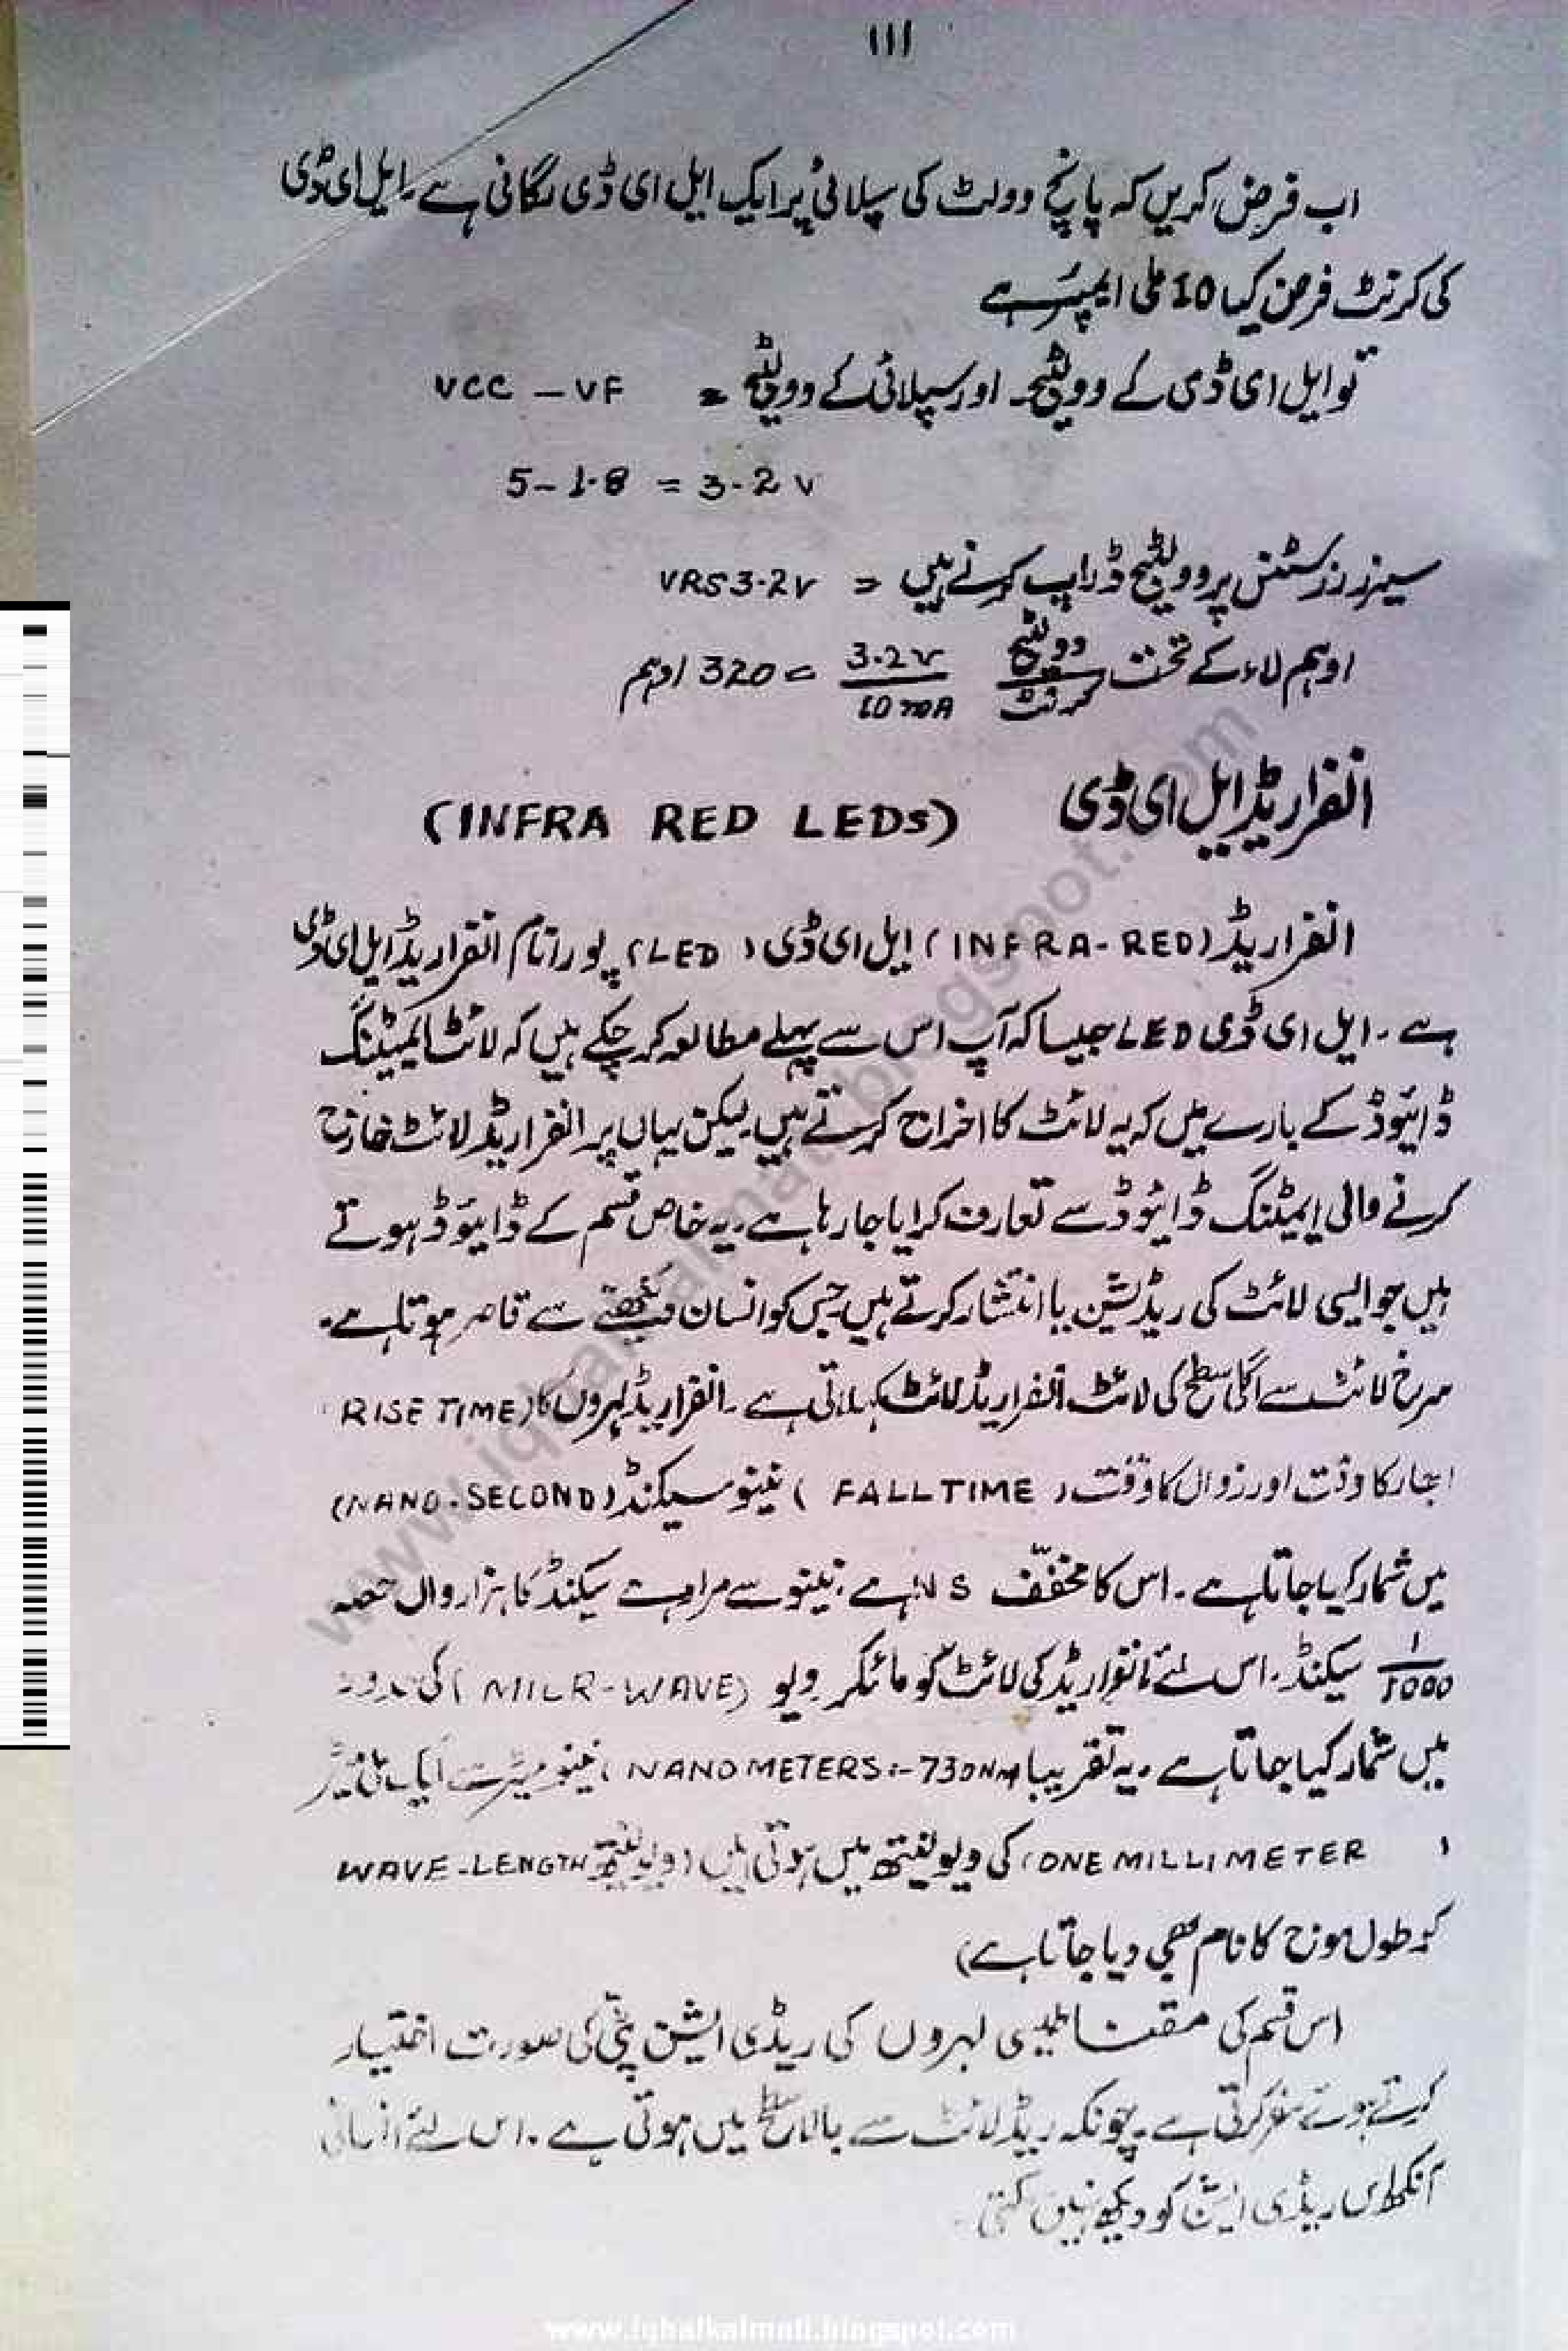 111
اب فرض کریں کہ پانچ وولٹ کی سپلائی پر ایک ایل ای ڈی لگانی ہے۔ ایل ای ڈی
کی کرنٹ فرض کیا 10 ملی ایمپئر ہے
تو ایل ای ڈی کے وولٹیج۔ اور سپلائی کے وولٹیج = VCC – VF
5 – 1.8 = 3.2 V
سیریز رزسٹنس پر وولٹیج ڈراپ کرنے ہیں = VRS 3.2V
اوہم لاء کے تحت وولٹیج/کرنٹ 3.2v/10mA = 320 اوہم
انفراریڈ ایل ای ڈی (INFRA RED LEDs)
انفراریڈ (INFRA-RED) ایل ای ڈی (LED) پورا نام انفراریڈ ایل ای ڈی
ہے۔ ایل ای ڈی LED جیسا کہ آپ اس سے پہلے مطالعہ کر چکے ہیں کہ لائٹ ایمیٹنگ
ڈائیوڈ کے بارے میں کہ یہ لائٹ کا اخراج کرتے ہیں۔ لیکن یہاں پر انفراریڈ لائٹ خارج
کرنے والی ایمٹنگ ڈائیوڈ سے تعارف کرایا جا رہا ہے۔ یہ خاص قسم کے ڈائیوڈ ہوتے
ہیں جو ایسی لائٹ کی ریڈیشن یا انتشار کرتے ہیں جس کو انسان دیکھنے سے قاصر ہوتا ہے۔
سرخ لائٹ سے اگلی سطح کی لائٹ انفراریڈ لائٹ کہلاتی ہے۔ انفراریڈ لہروں کا (RISE TIME
ابھار کا وقت اور زوال کا وقت (FALL TIME) نینو سیکنڈ (NANO-SECOND)
میں شمار کیا جاتا ہے۔ اس کا مخفّف NS ہے۔ نینو سے مراد ہے سیکنڈ کا ہزارواں حصہ
1/1000 سیکنڈ۔ اس لئے انفراریڈ کی لائٹ کو مائکر ویو (MILR-WAVE) کی
میں شمار کیا جاتا ہے۔ یہ تقریبا NANO METERS:-730NM) نینو میٹر سے ایک ملی میٹر
(ONE MILLIMETER کی ویو لینتھ میں ہوتی ہیں (ویو لینتھ WAVE-LENGTH
کو طول موج کا نام بھی دیا جاتا ہے)
اس قسم کی مقناطیسی لہروں کی ریڈی ایشن پٹی کی صورت اختیار
کرتے ہوئے سفر کرتی ہے۔ چونکہ ریڈ لائٹ سے بالا سطح میں ہوتی ہے۔ اس لئے انسانی
آنکھ اس ریڈی ایشن کو دیکھ نہیں سکتی۔
www.iqbalkalmati.blogspot.com
www.iqbalkalmati.blogspot.com